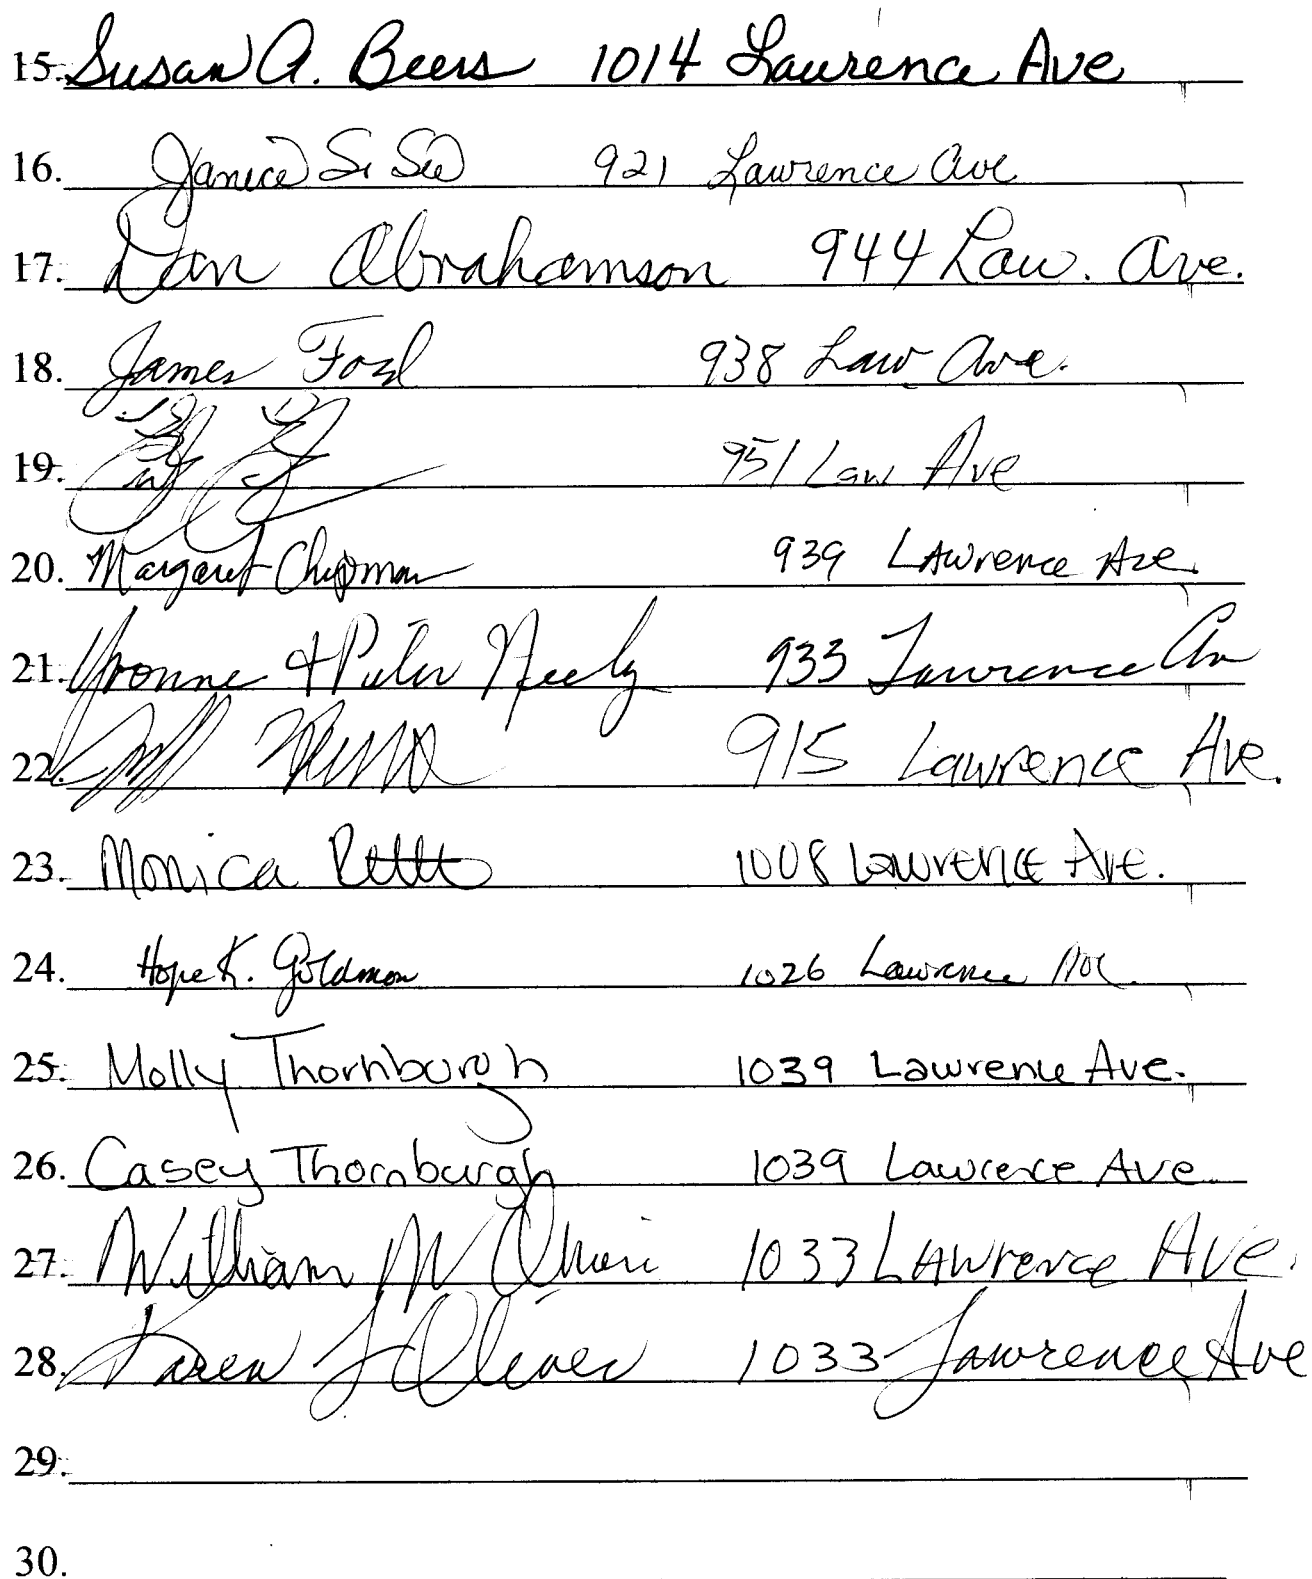 15. Susan A. Beers 1014 Lawrence Ave
16. Janice S. See 921 Lawrence Ave
17. Dan Abrahamson 944 Law. Ave.
18. James Ford 938 Law Ave.
19. 951 Law Ave
20. Margaret Chapman 939 LAwrence Ave.
21. Yvonne & Peter Neely 933 Lawrence Av
22. 915 Lawrence Ave.
23. Monica 1008 Lawrence Ave.
24. Hope K. Goldman 1026 Lawrence Ave
25. Molly Thornburgh 1039 Lawrence Ave.
26. Casey Thornburgh 1039 Lawrence Ave
27. William M 1033 LAwrence Ave.
28. Karen L Oliver 1033 Lawrence Ave
29.
30.